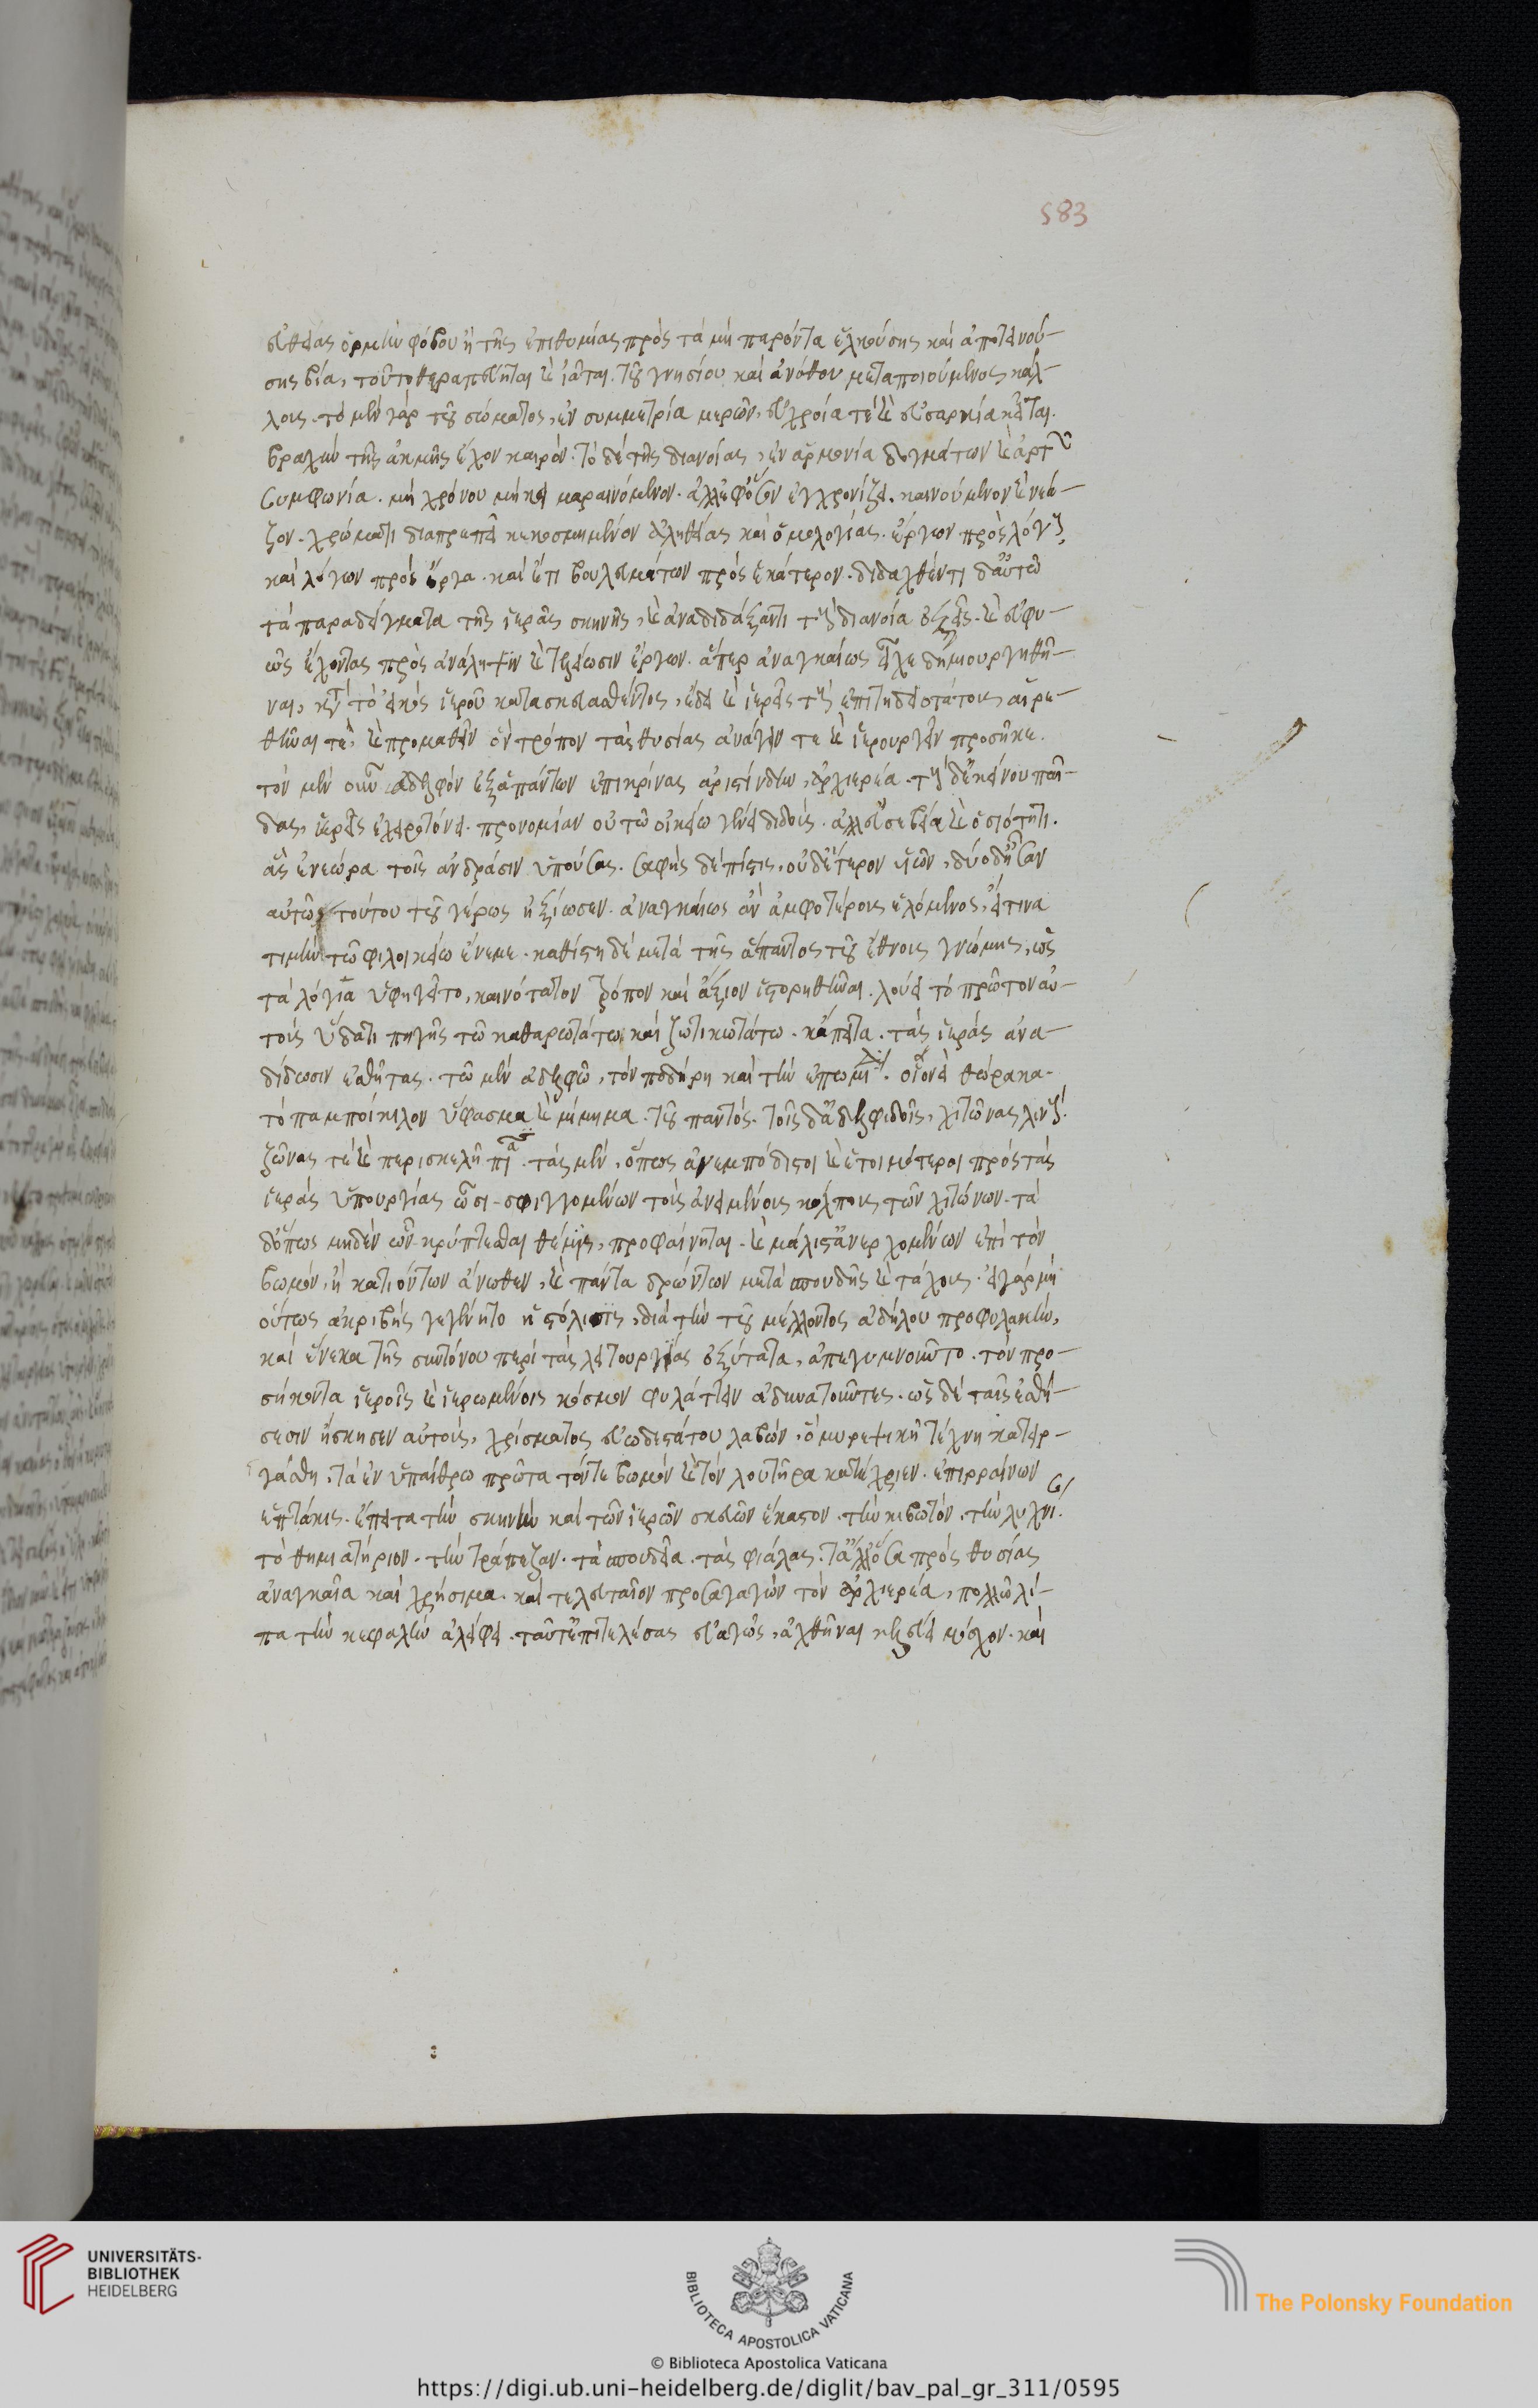 583
εὐθείας ὁρμὴν φόβου ἢ τῆς ἐπιθυμίας πρὸς τὰ μὴ παρόντα ἑλκούσης καὶ ἀποτεινού-
σης βία, τοῦτο θεραπεύηται καὶ ἰᾶται. τοῦ γνησίου καὶ ἀνόθου μεταποιούμενος κάλ-
λους. τὸ μὲν γὰρ τοῦ σώματος, ἐν συμμετρία μερῶν, εὐχροία τὲ καὶ εὐσαρκία κεῖται.
βραχὺν τῆς ἀκμῆς ἔχον καιρόν. τὸ δὲ τῆς διανοίας, ἐν ἁρμονία δογμάτων καὶ ἀρετῶν
συμφωνία. μὴ χρόνου μήκει μαραινόμενον. ἀλλ' ἐφ' ὅσον ἐγχρονίζει. καινούμενον καὶ νεά-
ζον. χρώματι διαπρεπεῖ κεκοσμημένον ἀληθείας καὶ ὁμολογίας. ἔργων πρὸς λόγους
καὶ λόγων πρὸς ἔργα. καὶ ἔτι βουλευμάτων πρὸς ἑκάτερον. διδαχθέντι δ' αὐτῶ
τὰ παραδείγματα τῆς ἱερᾶς σκηνῆς, καὶ ἀναδιδάξαντι τοὺς διανοία ὀξεῖς. καὶ εὐφυ-
ῶς ἔχοντας πρὸς ἀνάληψιν καὶ τελείωσιν ἔργων. ἅπερ ἀναγκαίως εἶχε δημιουργηθῆ-
ναι, κατὰ τὸ εἰκὸς ἱεροῦ κατασκευασθέντος, ἔδει καὶ ἱερεῖς τοὺς ἐπιτηδειοτάτους αἱρε-
θῆναι τὲ, καὶ προμαθεῖν ὃν τρόπον τὰς θυσίας ἀνάγειν τε καὶ ἱερουργεῖν προσῆκε.
τὸν μὲν οὖν ἀδελφὸν ἐξ ἁπάντων ἐπικρίνας ἀριστίνδην, ἀρχιερέα. τοὺς δ' ἐκείνου παῖ-
δας, ἱερεῖς ἐχειροτόνει. προνομίαν οὐ τῶ οἰκείω γένει διδοὺς. ἀλλ' εὐσεβεία καὶ ὁσιότητι.
ἃς ἐνεώρα τοῖς ἀνδράσιν ὑπούσας. σαφὴς δὲ πίστις, οὐδέτερον υἱῶν, δύο δ' ἦσαν
αὐτῶ, τούτου τοῦ γέρως ἠξίωσεν. ἀναγκαίως ἂν ἀμφοτέρους ἑλόμενος, εἴ τινα
τιμὴν τῶ φιλοικείω ἔνεμε. καθίστη δὲ μετὰ τῆς ἅπαντος τοῦ ἔθνους γνώμης, ὡς
τὰ λόγια ὑφηγεῖτο, καινότατον τρόπον καὶ ἄξιον ἱστορηθῆναι. λούει τὸ πρῶτον αὐ-
τοὺς ὕδατι πηγῆς τῶ καθαρωτάτω καὶ ζωτικωτάτω. κἄπειτα. τὰς ἱερὰς ἀνα-
δίδωσιν ἐσθῆτας. τῶ μὲν ἀδελφῶ, τὸν ποδήρη καὶ τὴν ἐπωμίδα. οἱονεὶ θώρακα.
τὸ παμποίκιλον ὕφασμα καὶ μίμημα. τοῦ παντός. τοῖς δ' ἀδελφιδοῖς, χιτῶνας λινοῦς.
ζώνας τὲ καὶ περισκελῆ πια. τὰς μὲν, ὅπως ἀνεμπόδιστοι καὶ ἑτοιμότεροι πρὸς τὰς
ἱερὰς ὑπουργίας ὦσι. σφιγγομένων τοῖς ἀνειμένοις κόλποις τῶν χιτώνων. τὰ
δ' ὅπως μηδὲν ὧν κρύπτεσθαι θέμις, προφαίνηται. καὶ μάλιστ' ἀνερχομένων ἐπὶ τὸν
βωμόν, ἢ κατιόντων ἄνωθεν, καὶ πάντα δρώντων μετὰ σπουδῆς καὶ τάχους. εἰ γὰρ μὴ
οὕτως ἀκριβὴς γεγένητο ἡ στόλισις, διὰ τὴν τοῦ μέλλοντος ἀδήλου προφυλακὴν,
καὶ ἕνεκα τῆς συντόνου περὶ τὰς λειτουργίας ὀξύτατα, ἀπεγυμνοῦντο. τὸν προ-
σήκοντα ἱεροῖς καὶ ἱερωμένοις κόσμον φυλάττειν ἀδυνατοῦντες. ὡς δὲ ταῖς ἐσθή-
σεσιν ἤσκησεν αὐτοὺς, χρίσματος εὐωδεστάτου λαβὼν, ὃ μυρεψικῆ τέχνη κατειρ-
γάσθη, τὰ ἐν ὑπαίθρω πρῶτα τόν τε βωμὸν καὶ τὸν λουτῆρα κατέχριεν. ἐπιρραίνων
ἑπτάκις. ἔπειτα τὴν σκηνὴν καὶ τῶν ἱερῶν σκευῶν ἕκαστον. τὴν κιβωτόν. τὴν λυχνίαν.
τὸ θυμιατήριον. τὴν τράπεζαν. τὰ σπονδεῖα. τὰς φιάλας. τἄλλ' ὅσα πρὸς θυσίας
ἀναγκαῖα καὶ χρήσιμα. καὶ τελευταῖον προσαγαγὼν τὸν ἀρχιερέα, πολλῶ λί-
πα τὴν κεφαλὴν ἀλείφει. ταῦτ' ἐπιτελέσας εὐαγῶς, ἀχθῆναι κελεύει μόσχον. καὶ
UNIVERSITÄTS-
BIBLIOTHEK
HEIDELBERG
BIBLIOTECA APOSTOLICA VATICANA
The Polonsky Foundation
© Biblioteca Apostolica Vaticana
https://digi.ub.uni-heidelberg.de/diglit/bav_pal_gr_311/0595